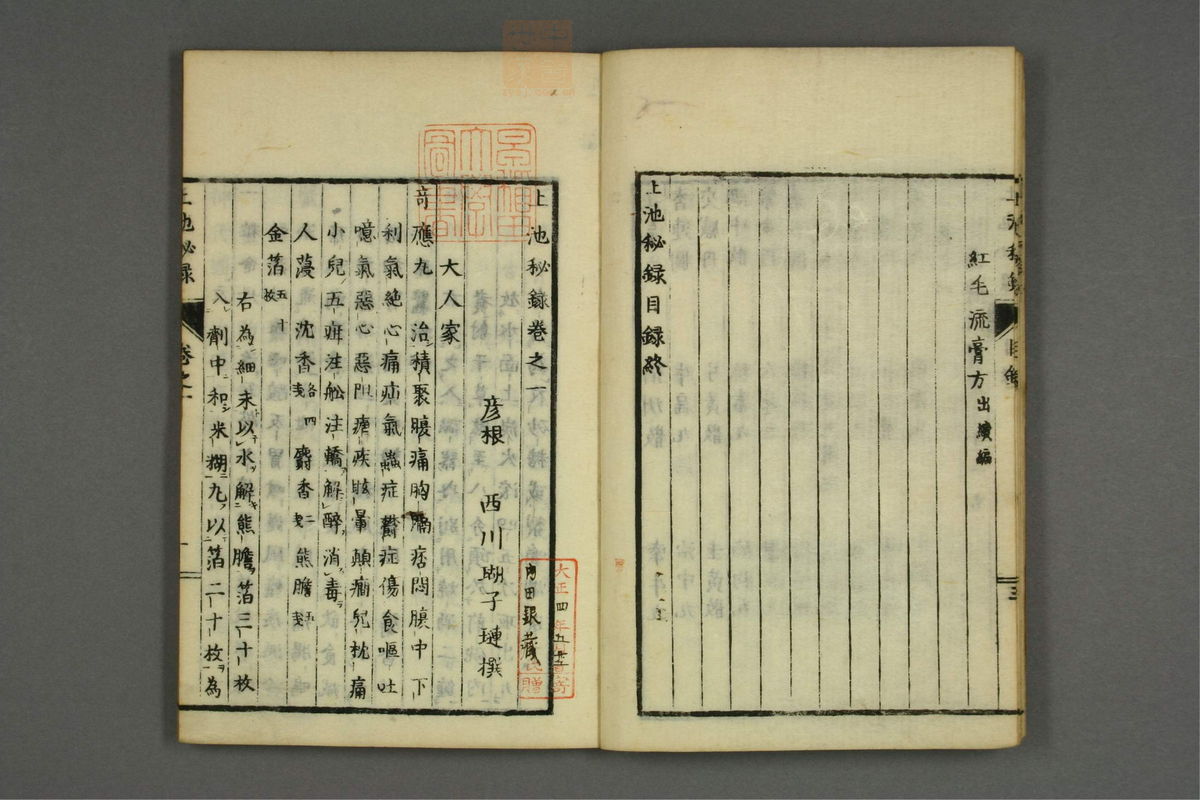 紅毛流膏方出續編
上池秘録目録終
上池秘録 目録 三
上池秘録卷之一
彦根 西川瑚子璉撰
大人家
奇應丸治積聚腹痛胸膈痞悶腹中下
利氣絶心痛疝氣蟲症欝症傷食嘔吐
噫氣惡心惡阻瘧疾眩暈顛癇兒枕痛
小兒五疳注舩注轎解醉消毒
人蓡沈香各四麝香二熊膽
金箔五十枚
右為細末以水解熊膽箔三十枚
入劑中和米糊丸以箔二十枚為
上池秘録 卷之一 一
内田銀藏
大正四年
寄贈